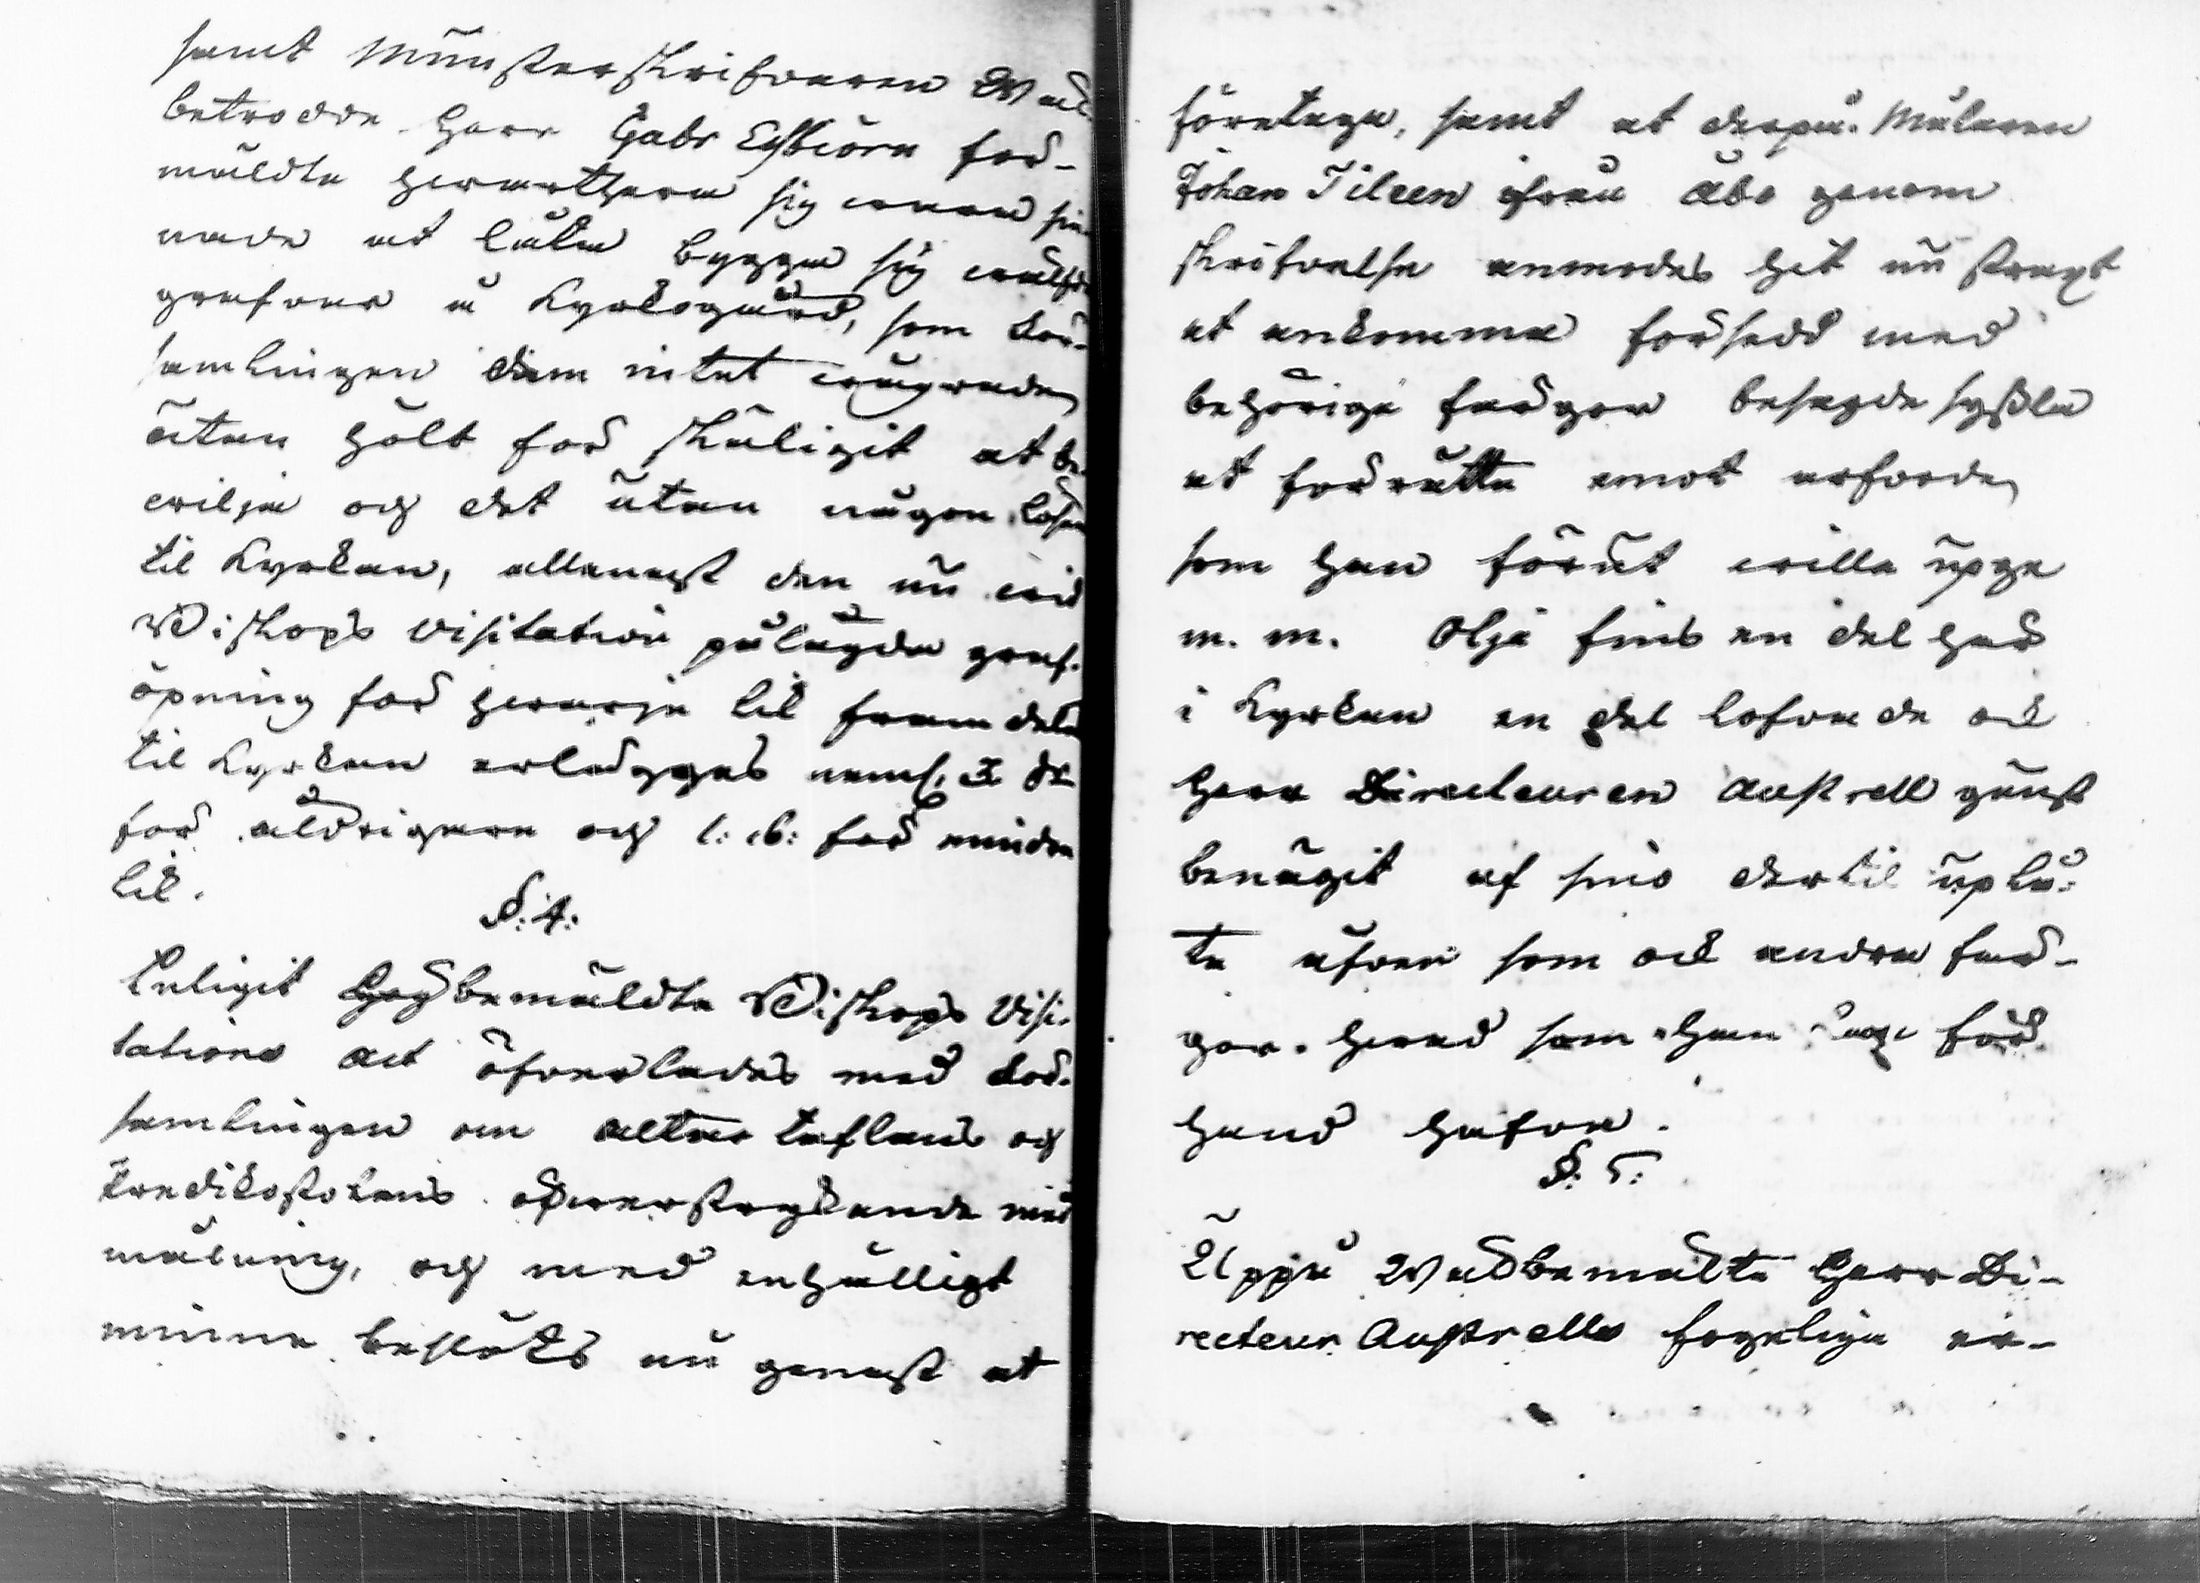 samt Münsterskrifvaren Wäl
betrodde Herr Gabr Eghbiörn för-
mälte hwarthera sig wara sin-
nade at låta byggja sig
grafvar å Kyrkogård, som För-
samlingen dem intet wägrade,
utan hölt för skäligit at be-
wilja och det utan någon lösen
til Kyrkan, allenast den nu wid
Biskops visitation pålagda graf-
öpning för hwarje lik framdeles
til Kyrkan erlägges neml. 3 dr
för äldrigare och 1: 16: för mindre
lik.
§: 4:
Enligit Högbemälte Biskops Visi-
tations act öfverlades med För-
samlingen om altar taflans och
Predikostolens öfwerstrykande med
målning, och med enhälligt
minne beslöts nu genast at
företaga, samt at derpå Målaren
Johan Tileen ifrån Åbo genom
skrifvelse anmodas hit nu straxt
at ankomma försedd med
behöriga färgor besagde sysla
at förrätta emot arfvode,
som han förut wille upge
m. m. Olja fins en del här
i Kyrkan en del lofvade ock
Herr Directeuren Austrell gunst
benägit af sins dertil uplå-
ta äfven som ock andra fär-
gor. hwad som han för
hand hafva.
§: 5:
Uppå Wälbemälte Herr Di-
recteur Austrells fogeliga an-